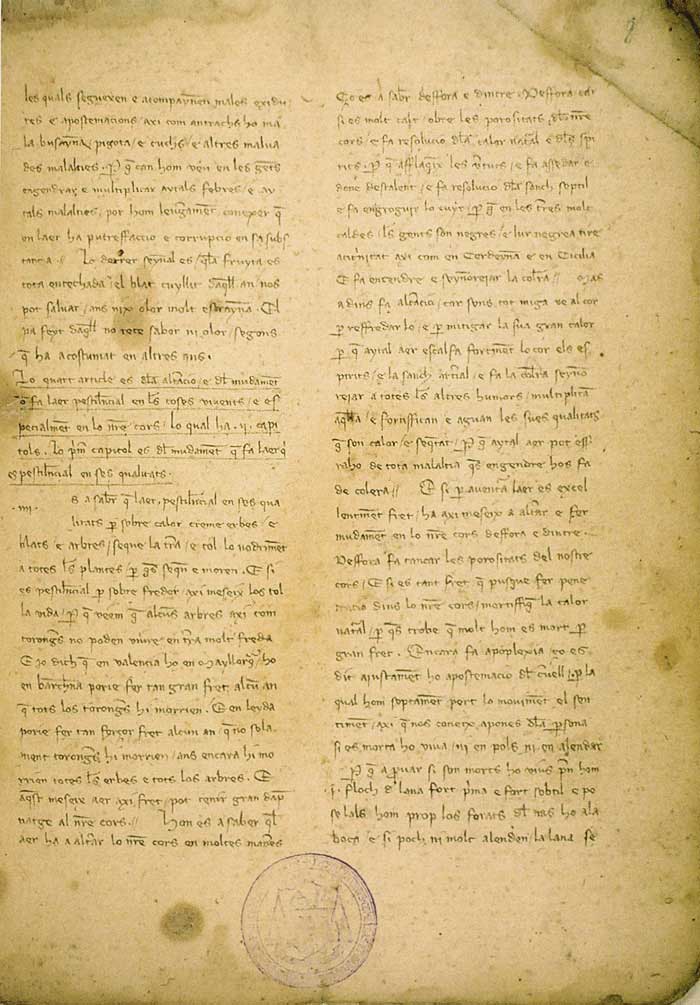 les quals seguexen e acompaynen males exidu
res e apostemacions / axi com antrachs ho ma
la busayna / pigota / e cuchs / e altres malua
des malalties. P q can hom veu en les gents
engendrar e multiplicar aytals febres / e ay
tals malalties / pot hom leugament conexer q
en laer ha putreffaccio e corrupcio en sa subs
tancia // Lo derrer seynal es / q la fruyta es
tota entechada / el blat cuyllit daqll an nos
pot saluar / ans nix olor molt estrayna. El
pa feyt daqll no rete sabor ni olor / segons
q ha acostumat en altres ans.
Lo quart article es dla altacio / e dl mudament
q fa laer pestilencial en les coses vivents / e es
pecialment en lo nre cors / lo qual ha .ii. capi
tols. Lo pm capitol es dl mudament q fa laer q
es pestilencial en ses qualitats.
.iiii. s a saber q laer pestilencial en ses qua
litats p sobre calor creme erbes / e
blats e arbres / seque la tra / e tol lo nodriment
a totes les plantes / p q sequen e moren. E si
es pestilencial p sobre fredor axi meseix los tol
la vida / p q veem q alcuns arbres axi com
torongs no poden viure en tra molt freda
E jo dich q en valencia ho en mayllorq / ho
en barchna porie fer tan gran fret alcun an
q tots los torongs hi morrien. E en leyda
porie fer tan forçor fret alcun an q no sola
ment torongs hi morrien / ans encara hi mo
rrien totes les erbes e tots los arbres. E
aqst meseix aer axi fret / pot tenir gran dap
natge al nre cors // Hon es a saber ql
aer ha a altrar lo nre cors en moltes maneres
Ço es a saber deffora e dintre. Deffora / car
si es molt calt / obre les porositats dl nre
cors / e fa resolucio dla calor natal e dls spi
rits. P q afflaqix les vertuts / e fa assedar e
done destalent / e fa resolucio dl sanch soptil
e fa engroguir lo cuyr / p q en les tres molt
caldes / ls gents son negres / e lur negrea tire
a citrinitat axi com en Cerdeyna e en Cicilia
E fa encendre e seynorejar la colra // Mas
a dins fa altacio / car sens tot miga ve al cor
p reffredar lo / e p mitigar la sua gran calor
p q aytal aer escalfa fortment lo cor els es
pirits / e la sanch artial / e fa la colra seyno
rejar a totes les altres humors / multiplicant
aqlla / e fortifficant e aguan les sues qualitats
q son calor / e seqtat / p q aytal aer pot esser
raho de tota malaltia qs engendre hos fa
de colera // E si p auentura laer es excel
lentment fret / ha axi meseix a altrar e fer
mudament en lo nre cors deffora e dintre.
Deffora fa tancar les porositats del nostre
cors / E si es tant fret q pusque fer pene
tracio dins lo nre cors / mortiffiq la calor
natal / p qs trobe q molt hom es mort p
gran fret. Encara fa apoplexia ço es
dit ajustament ho apostemacio dl cruell / p la
qual hom soptament pert lo moviment el sen
timent / axi q nos conex apenes dla psona
si es morta ho viva / ni en pols ni en alendar
P q a pvar si son morts ho vius pn hom
.j. floch d lana fort pma e fort sobtil e po
se lals hom prop los forats dl nas ho a la
boca e si poch ni molt alenden / la lana se